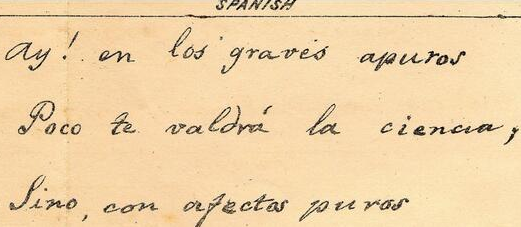 SPANISH
Ay! en los graves apuros
Poco te valdrá la ciencia,
Sino, con afectos puros